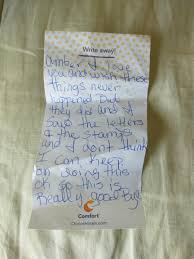 Write away!
Amber I love
you and wish these
things never
happened but
they did and I
says the letters
& the stamps
and I don't think
I can keep
on doing this
ok so this is
Really good Bye
Comfort